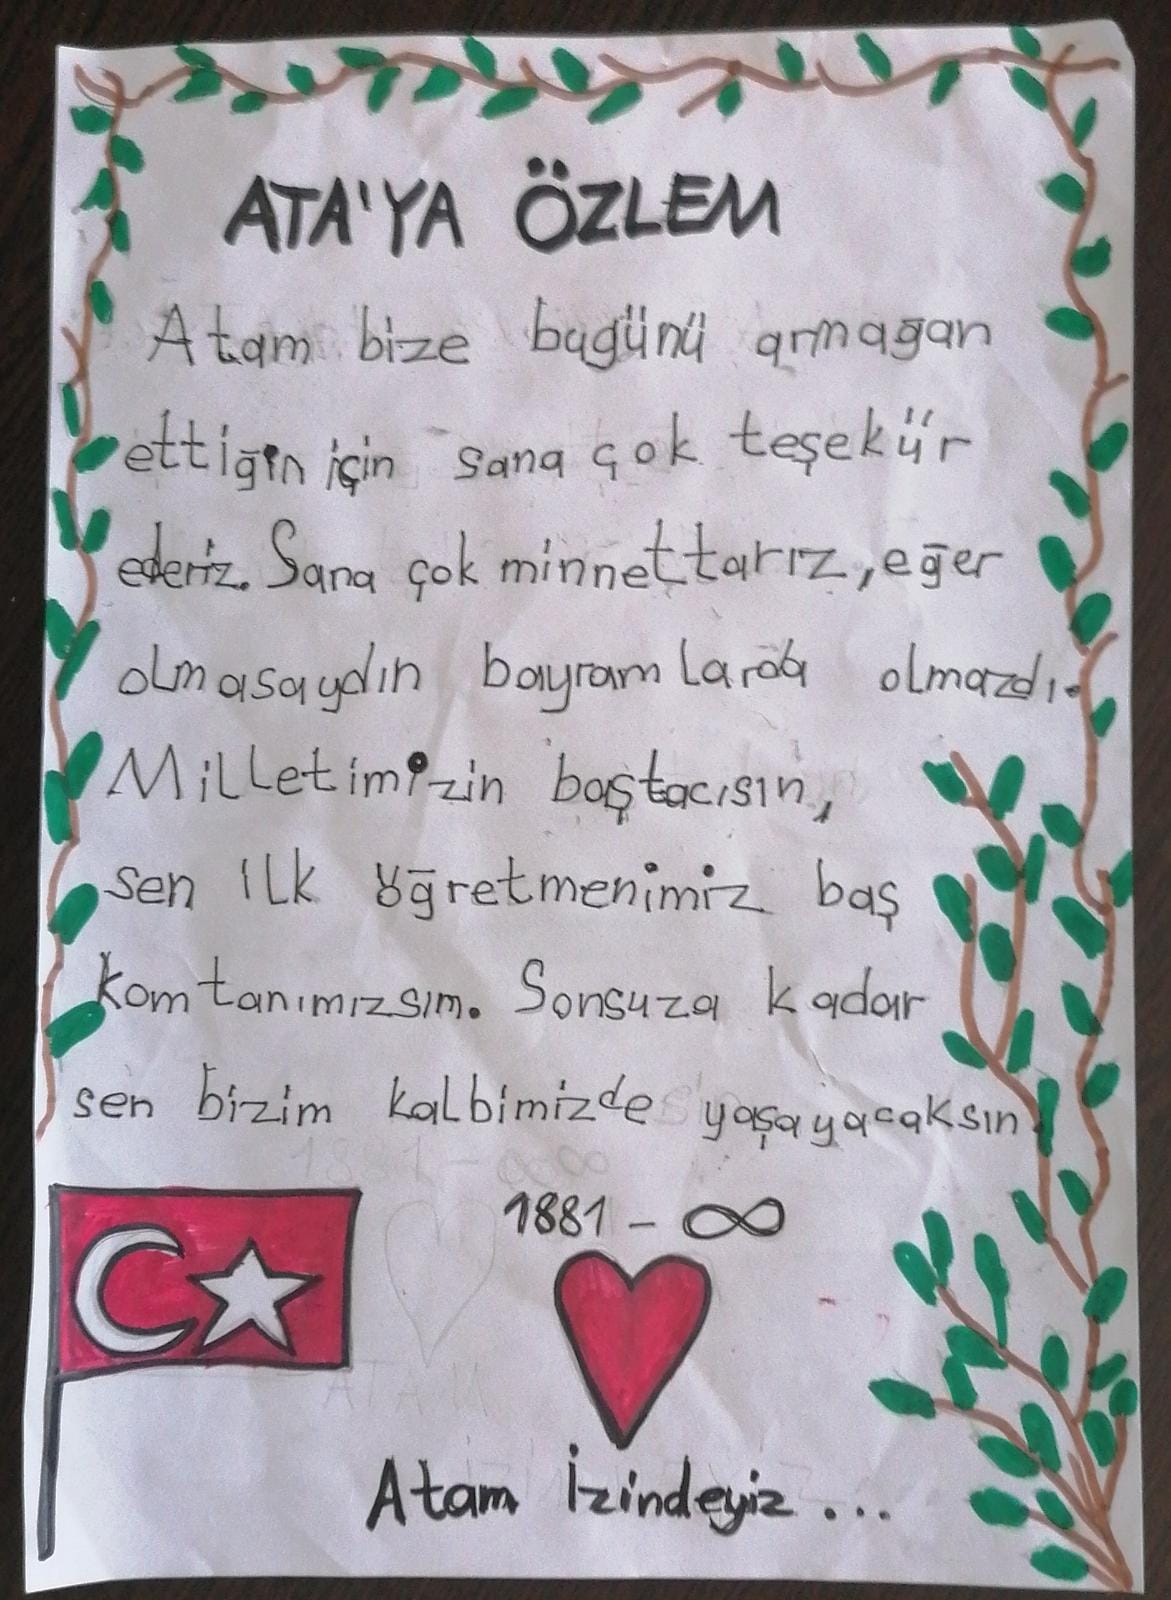 ATA'YA ÖZLEM
Atam bize bugünü armağan
ettiğin için sana çok teşekür
ederiz. Sana çok minnettarız, eğer
olmasaydın bayramlarda olmazdı.
Milletimizin baştacısın,
sen ilk öğretmenimiz baş
komtanımızsım. Sonsuza kadar
sen bizim kalbimizde yaşayacaksın
1881 - ∞
Atam İzindeyiz...